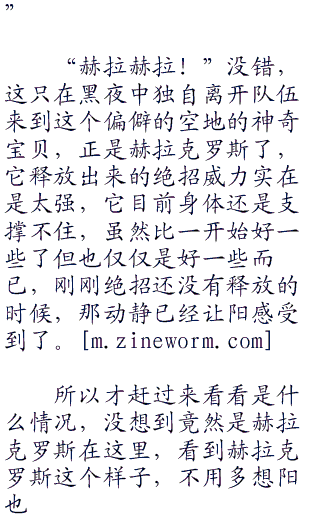 ”
“赫拉赫拉！”没错，
这只在黑夜中独自离开队伍
来到这个偏僻的空地的神奇
宝贝，正是赫拉克罗斯了，
它释放出来的绝招威力实在
是太强，它目前身体还是支
撑不住，虽然比一开始好一
些了但也仅仅是好一些而
已，刚刚绝招还没有释放的
时候，那动静已经让阳感受
到了。[m.zineworm.com]
所以才赶过来看看是什
么情况，没想到竟然是赫拉
克罗斯在这里，看到赫拉克
罗斯这个样子，不用多想阳
也